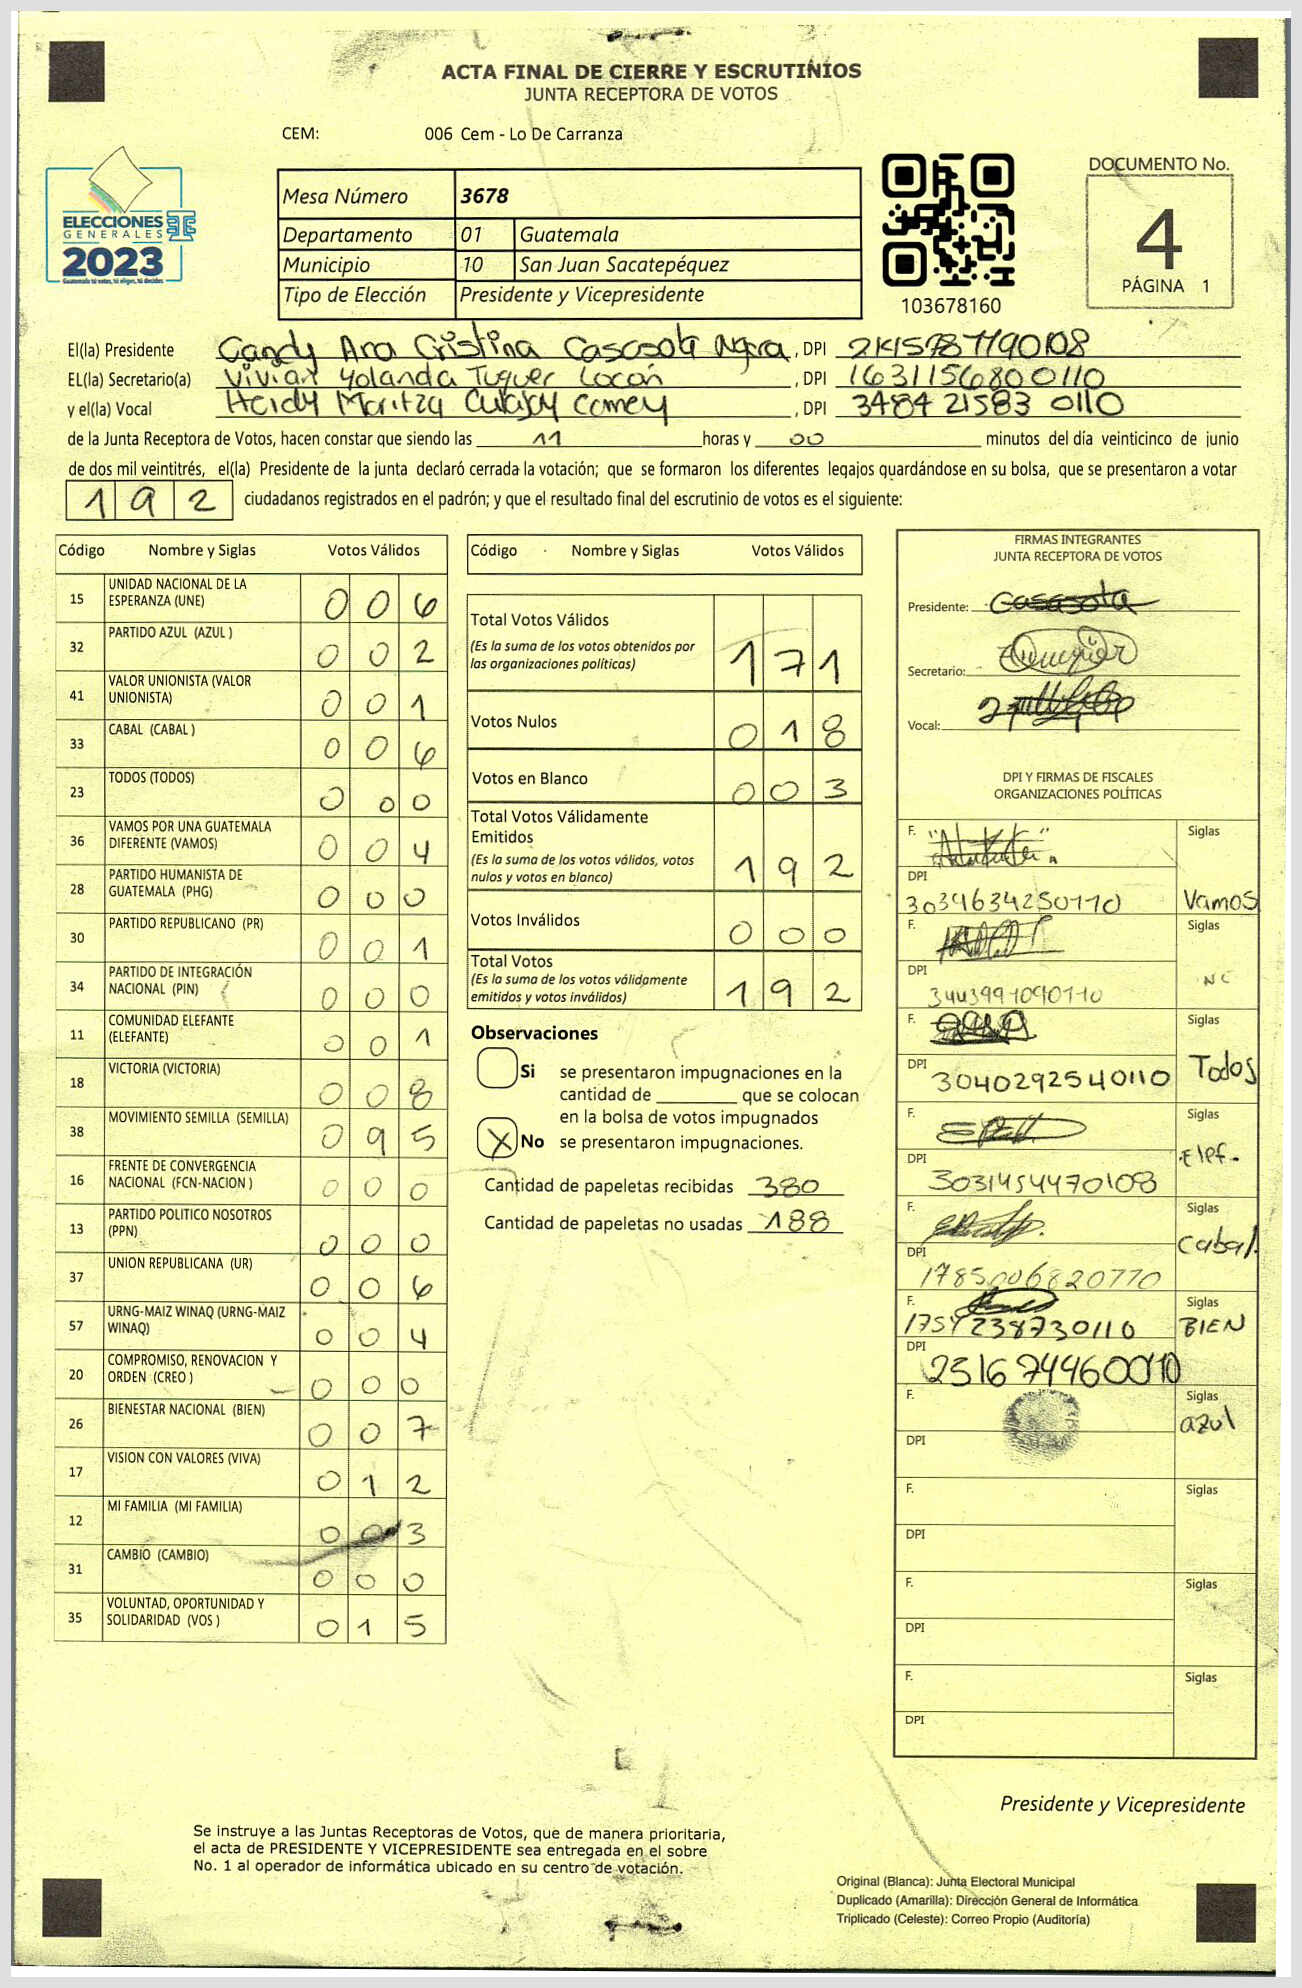 ACTA FINAL DE CIERRE Y ESCRUTINIOS
JUNTA RECEPTORA DE VOTOS
CEM: 006 Cem - Lo De Carranza
ELECCIONES
GENERALES
2023
Guatemala tú votas, tú eliges, tú decides
Mesa Número 3678
Departamento 01 Guatemala
Municipio 10 San Juan Sacatepéquez
Tipo de Elección Presidente y Vicepresidente
103678160
DOCUMENTO No.
4
PÁGINA 1
El(la) Presidente Candy Ana Cristina Casasola , DPI
EL(la) Secretario(a) Vivian Yolanda Tuquer Locón , DPI 1631156800110
y el(la) Vocal Heidy Maritza Culajay Comey , DPI 3484 21583 0110
de la Junta Receptora de Votos, hacen constar que siendo las 11 horas y 00 minutos del día veinticinco de junio
de dos mil veintitrés, el(la) Presidente de la junta declaró cerrada la votación; que se formaron los diferentes legajos guardándose en su bolsa, que se presentaron a votar
192 ciudadanos registrados en el padrón; y que el resultado final del escrutinio de votos es el siguiente:
Código Nombre y Siglas Votos Válidos
15 UNIDAD NACIONAL DE LA ESPERANZA (UNE) 0 0 6
32 PARTIDO AZUL (AZUL ) 0 0 2
41 VALOR UNIONISTA (VALOR UNIONISTA) 0 0 1
33 CABAL (CABAL ) 0 0 6
23 TODOS (TODOS) 0 0 0
36 VAMOS POR UNA GUATEMALA DIFERENTE (VAMOS) 0 0 4
28 PARTIDO HUMANISTA DE GUATEMALA (PHG) 0 0 0
30 PARTIDO REPUBLICANO (PR) 0 0 1
34 PARTIDO DE INTEGRACIÓN NACIONAL (PIN) 0 0 0
11 COMUNIDAD ELEFANTE (ELEFANTE) 0 0 1
18 VICTORIA (VICTORIA) 0 0 8
38 MOVIMIENTO SEMILLA (SEMILLA) 0 9 5
16 FRENTE DE CONVERGENCIA NACIONAL (FCN-NACION ) 0 0 0
13 PARTIDO POLITICO NOSOTROS (PPN) 0 0 0
37 UNION REPUBLICANA (UR) 0 0 6
57 URNG-MAIZ WINAQ (URNG-MAIZ WINAQ) 0 0 4
20 COMPROMISO, RENOVACION Y ORDEN (CREO ) 0 0 0
26 BIENESTAR NACIONAL (BIEN) 0 0 7
17 VISION CON VALORES (VIVA) 0 1 2
12 MI FAMILIA (MI FAMILIA) 0 0 3
31 CAMBIO (CAMBIO) 0 0 0
35 VOLUNTAD, OPORTUNIDAD Y SOLIDARIDAD (VOS ) 0 1 5
Código Nombre y Siglas Votos Válidos
Total Votos Válidos 1 7 1
(Es la suma de los votos obtenidos por
las organizaciones políticas)
Votos Nulos 0 1 8
Votos en Blanco 0 0 3
Total Votos Válidamente
Emitidos 1 9 2
(Es la suma de los votos válidos, votos
nulos y votos en blanco)
Votos Inválidos 0 0 0
Total Votos 1 9 2
(Es la suma de los votos válidamente
emitidos y votos inválidos)
Observaciones
Si se presentaron impugnaciones en la
cantidad de ________ que se colocan
en la bolsa de votos impugnados
X No se presentaron impugnaciones.
Cantidad de papeletas recibidas 380
Cantidad de papeletas no usadas 188
FIRMAS INTEGRANTES
JUNTA RECEPTORA DE VOTOS
Presidente: Casasola
Secretario:
Vocal:
DPI Y FIRMAS DE FISCALES
ORGANIZACIONES POLÍTICAS
F. Siglas
DPI 3034634250110 Vamos
F. Siglas
DPI 3443991090110 NC
F. Siglas
DPI 3040292540110 Todos
F. Siglas
DPI 3031454470108 Elef.
F. Siglas
DPI 1785006820770 Cabal
F. 1754238730110 Siglas BIEN
DPI
F. Siglas azul
DPI
F. Siglas
DPI
F. Siglas
DPI
F. Siglas
DPI
Presidente y Vicepresidente
Se instruye a las Juntas Receptoras de Votos, que de manera prioritaria,
el acta de PRESIDENTE Y VICEPRESIDENTE sea entregada en el sobre
No. 1 al operador de informática ubicado en su centro de votación.
Original (Blanca): Junta Electoral Municipal
Duplicado (Amarilla): Dirección General de Informática
Triplicado (Celeste): Correo Propio (Auditoría)